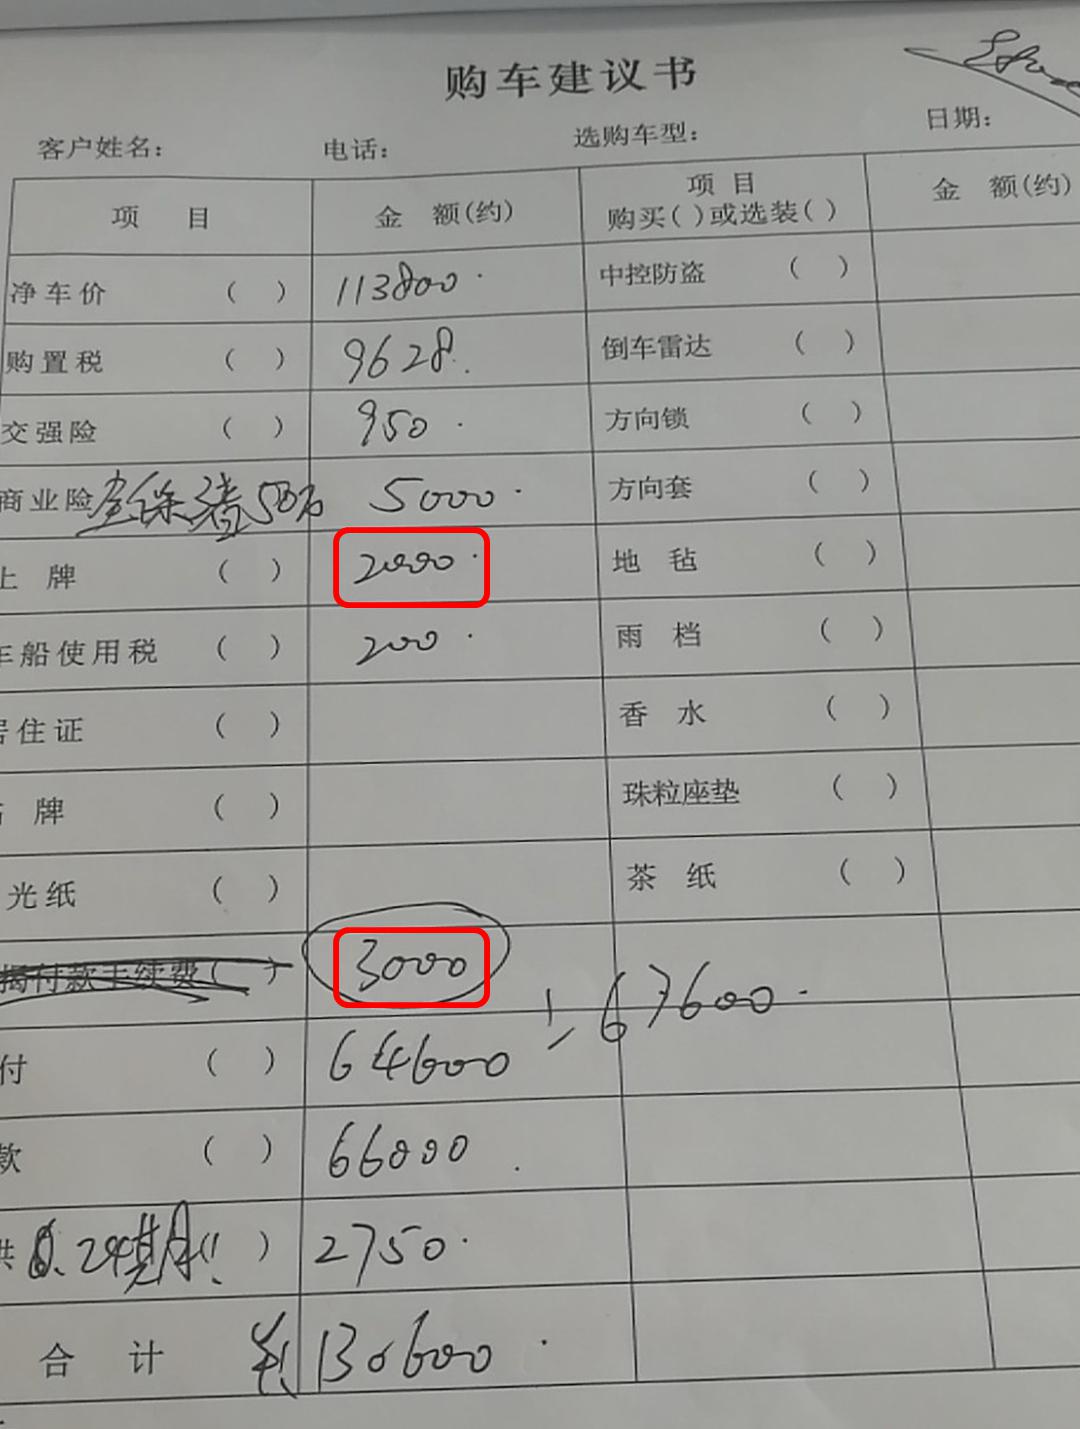 购车建议书
客户姓名： 电话： 选购车型： 日期：
项 目 金 额(约) 项 目 购买( )或选装( ) 金 额(约)
净车价 ( ) 113800. 中控防盗 ( )
购置税 ( ) 9628. 倒车雷达 ( )
交强险 ( ) 950. 方向锁 ( )
商业险 全保 50万 5000. 方向套 ( )
上 牌 ( ) 2000. 地 毡 ( )
车船使用税 ( ) 200. 雨 档 ( )
居住证 ( ) 香 水 ( )
牌 ( ) 珠粒座垫 ( )
光纸 ( ) 茶 纸 ( )
揭付款手续费( ) 3000
付 ( ) 64600 67600.
款 ( ) 66000.
供 24期 ) 2750.
合 计 130600.